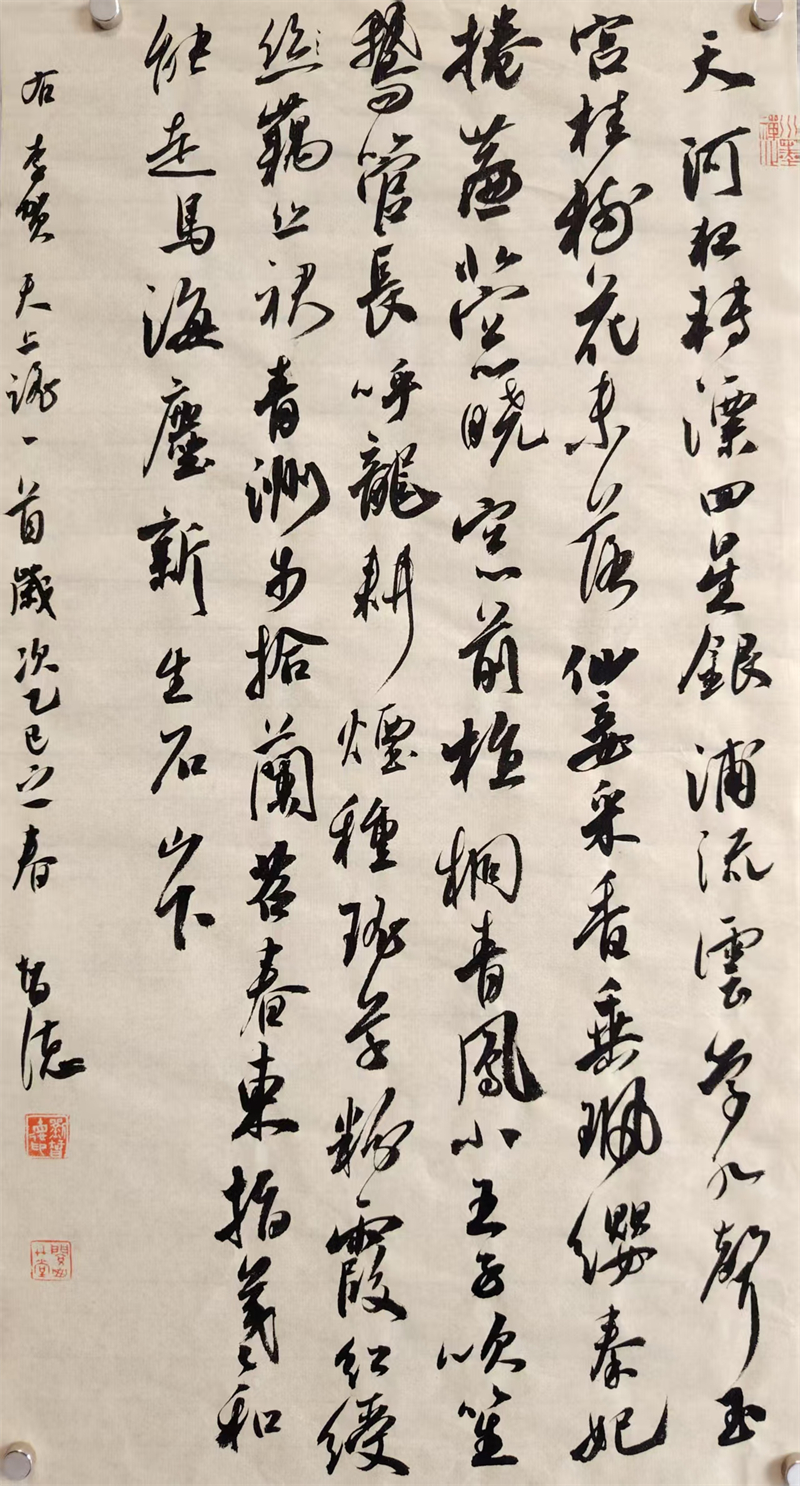 天河夜轉漂回星銀浦流雲學水聲玉
宮桂樹花未落仙妾采香垂珮纓秦妃
捲簾北窓曉窓前植桐青鳳小王子吹笙
鵞管長呼龍耕煙種瑤草粉霞紅綬
絲藕丝裙青洲步拾蘭苕春東指羲和
能走馬海塵新生石山下
右李賀天上謠一首歲次乙巳之春 智德
劉智德印